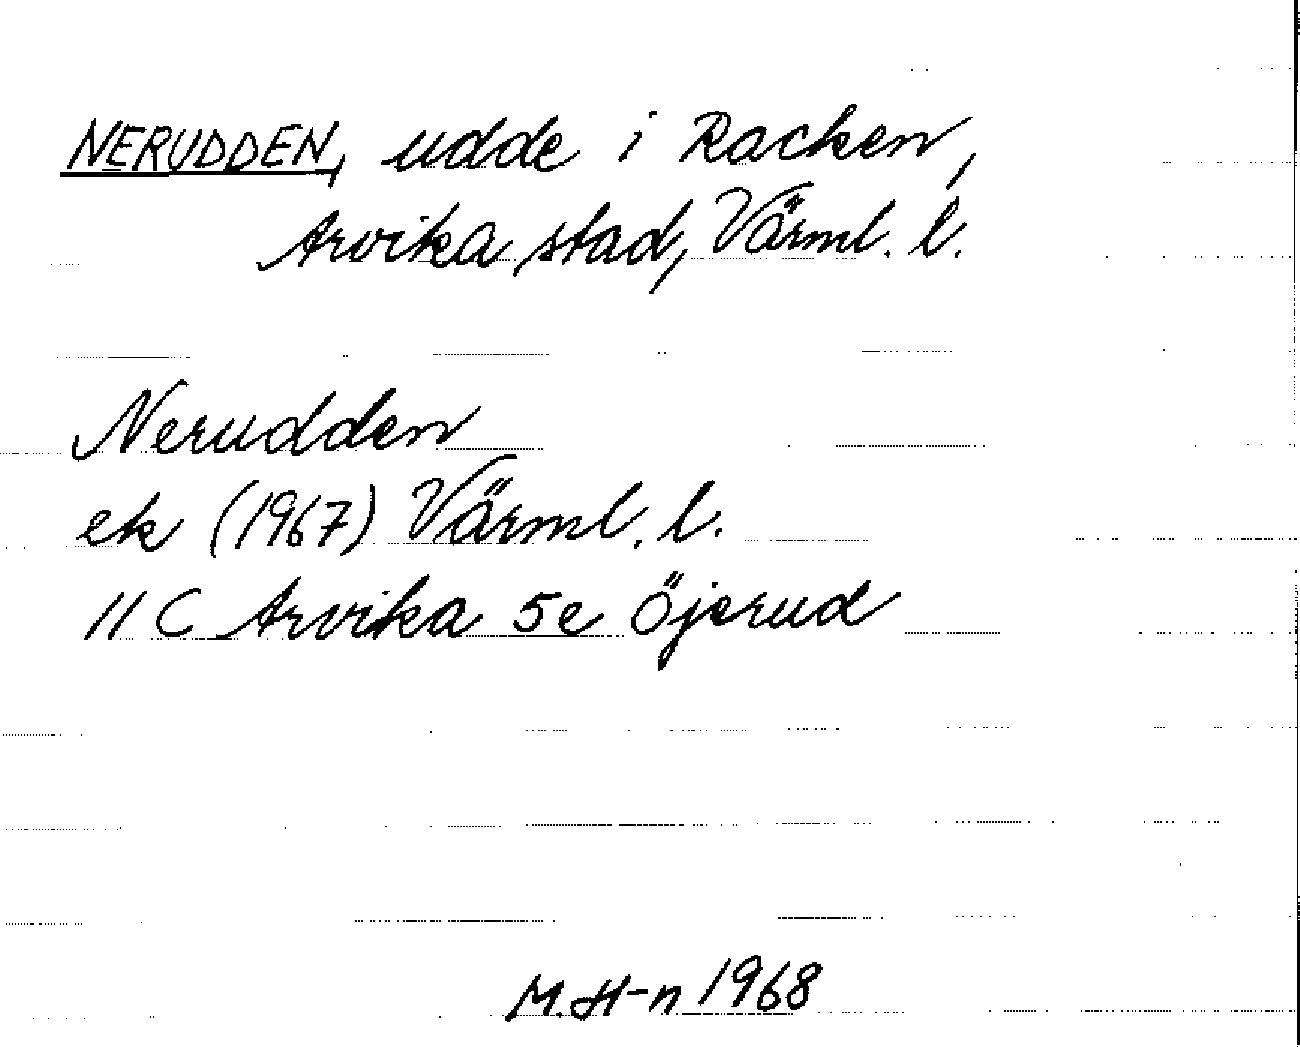 NERUDDEN, udde i Racken,
Arvika stad, Värml. l.
Nerudden
ek (1967) Värml. l.
11 C Arvika 5e Öjerud
M.H-n 1968